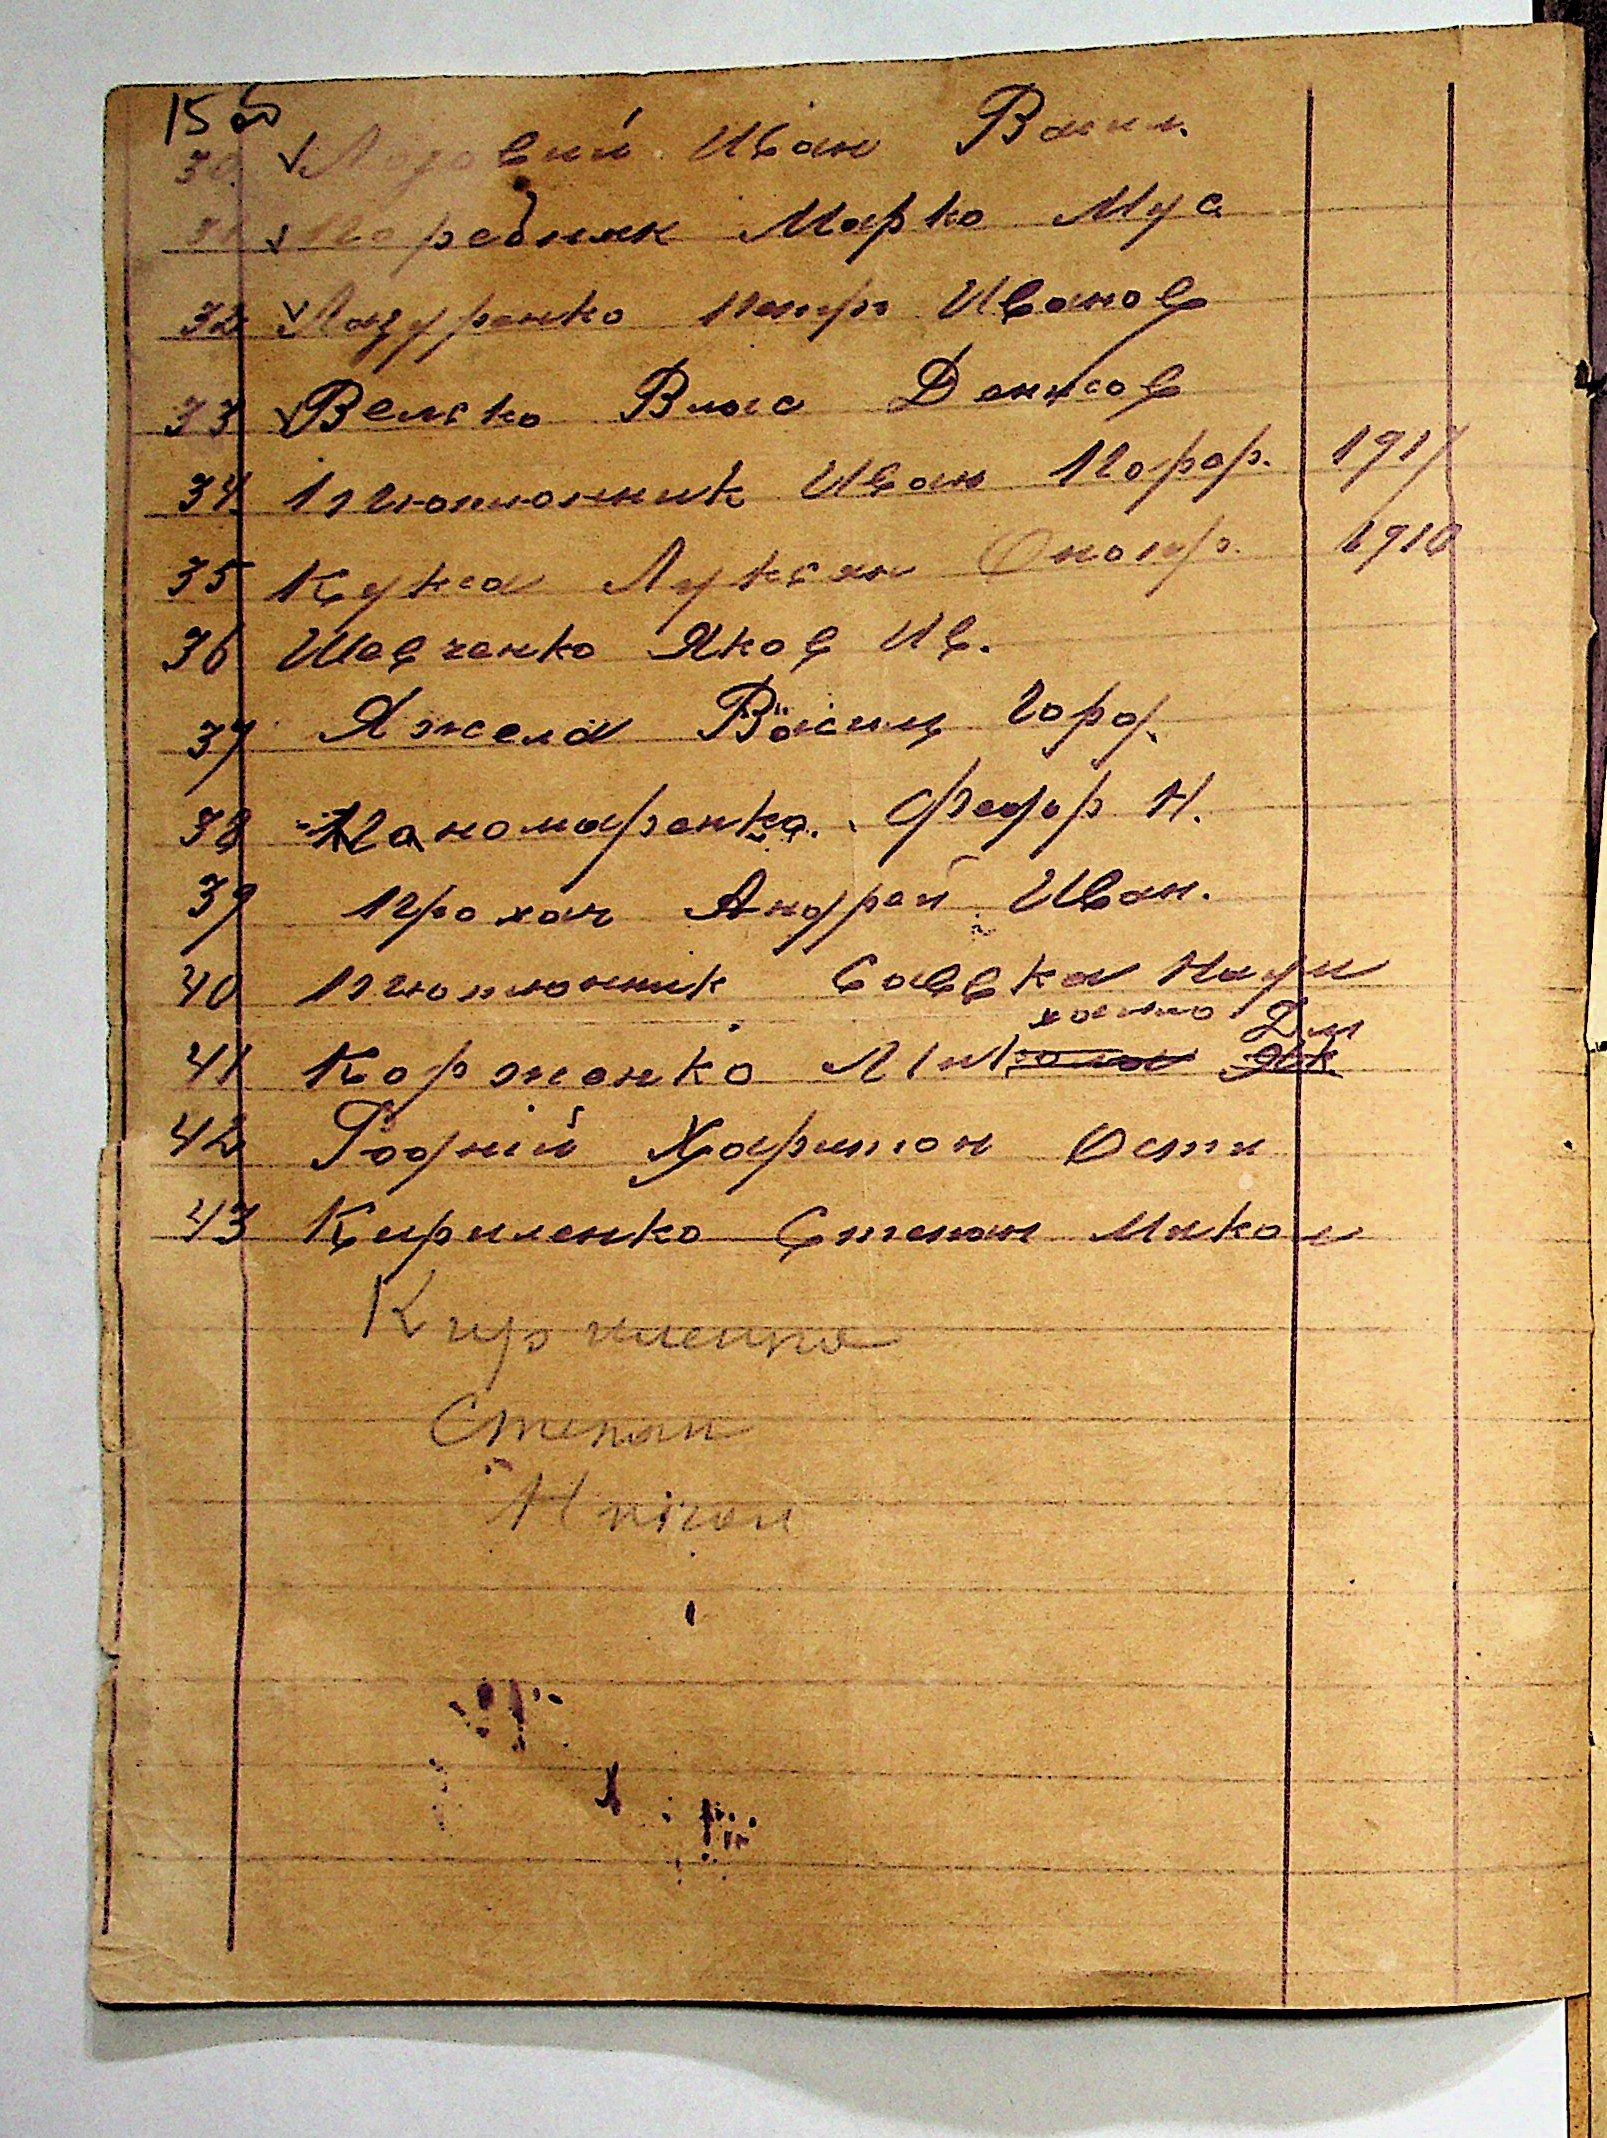 15 об
30. ✓ Лозовий Иван Васил.
31 ✓ Поребняк Марко Мус
32 ✓ Лазуренко Петр Иванов
33 ✓ Велько Влас Денисов
34. Тютюнник Иван Порф. 1917
35 Кужса Лукян Онопр. 1910
36 Шевченко Яков Ив.
37 Яжела Васил Горд.
38 Пономаренко Федор Н.
39 Прохач Андрей Иван.
40 Тютюнник Савка Наум
41 Корженко Дм
42 Родний Харитон Остп
43 Кириленко Степан Микол
Кириленко
Степан
Нікол